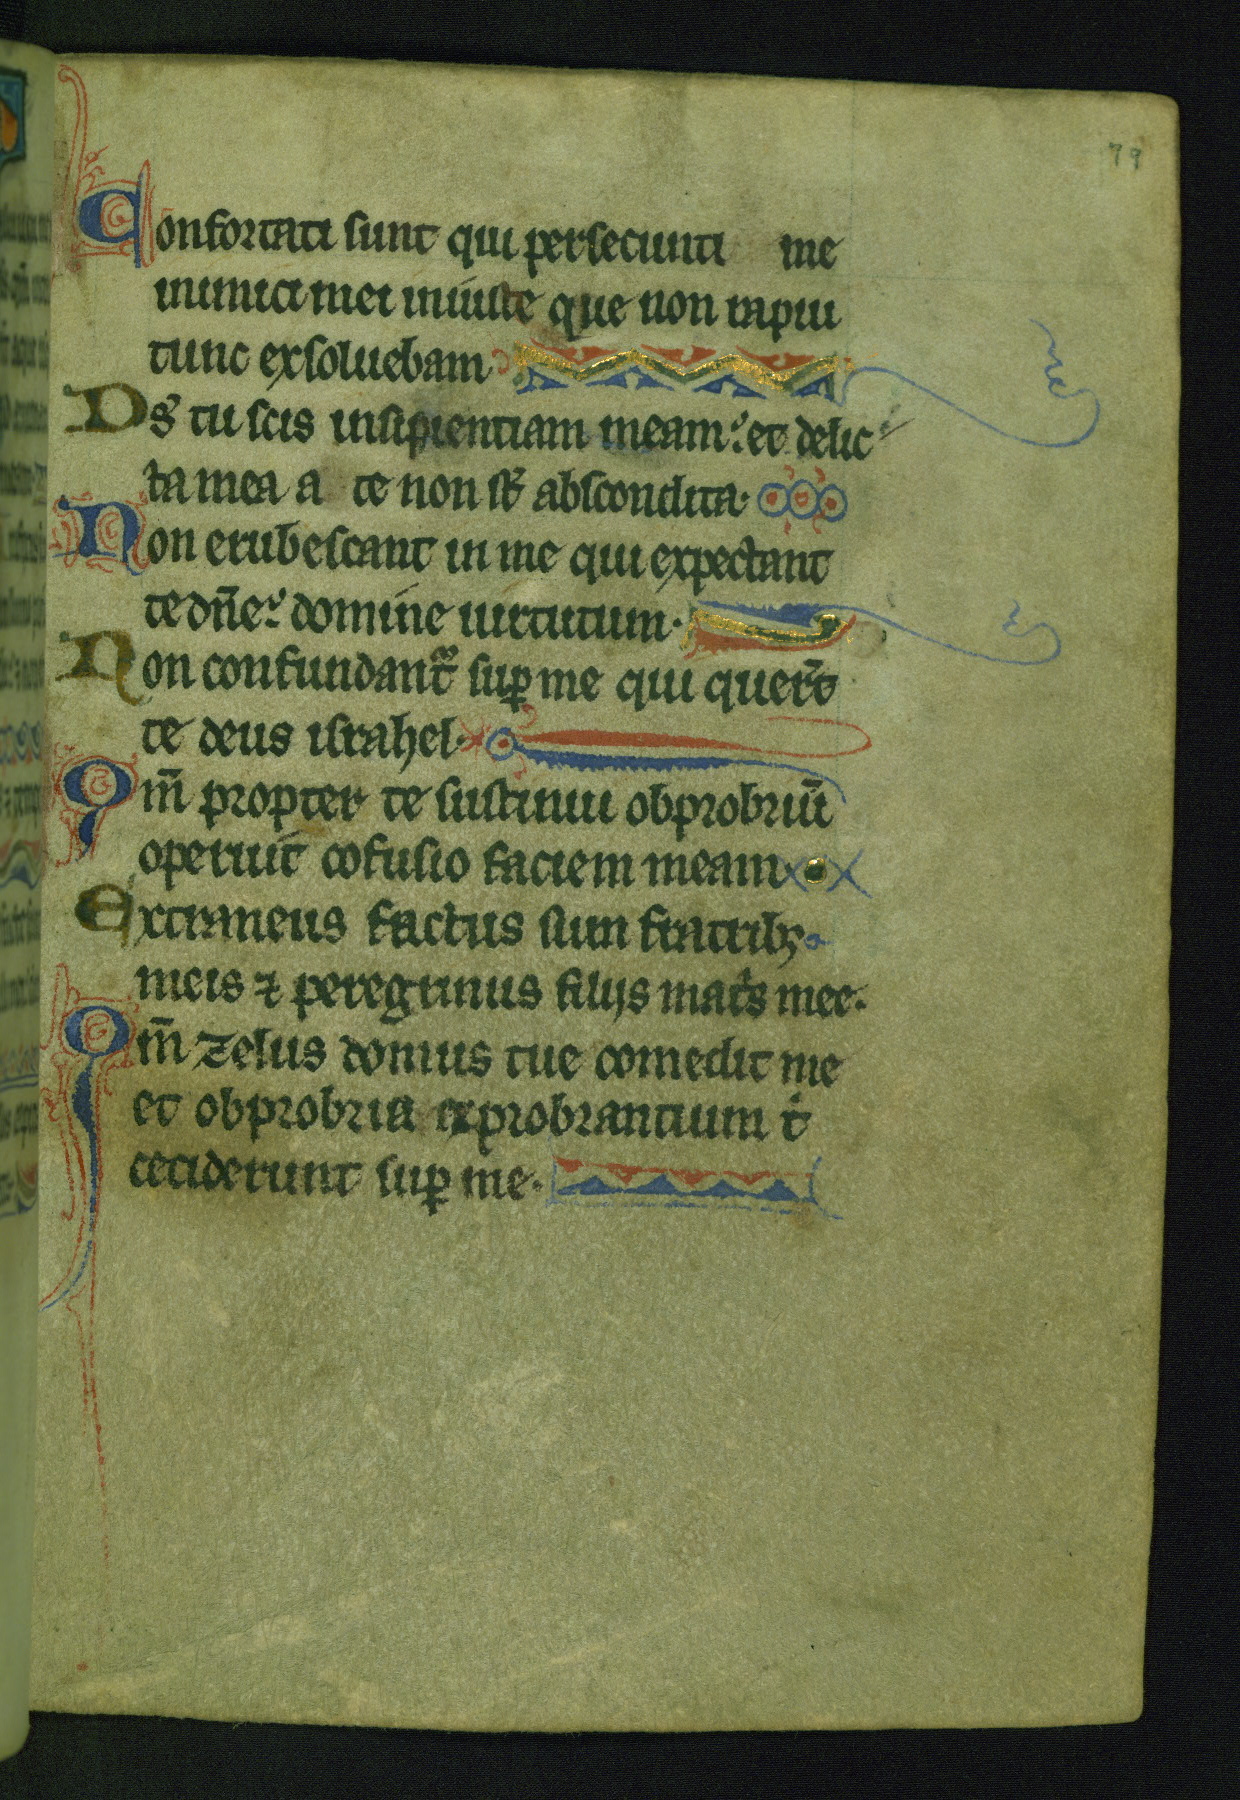 79
Confortati sunt qui persecunti me
inimici mei iniuste que non rapui
tunc exsoluebam
Ds̄ tu scis insipientiam meam: et delic
ta mea a te non st̄ abscondita.
Non erubescant in me qui expectant
te dn̄e: domine uirtutum.
Non confundantᷣ suꝑ me qui querūt
te deus israhel.
Qm̄ propter te sustinui obprobriū
operuit cōfusio faciem meam
Extraneus factus sum fratribꝫ
meis ⁊ peregrinus filijs mat̉s mee.
Qm̄ zelus domus tue comedit me
et obprobria exprobrantium t̉
ceciderunt suꝑ me.